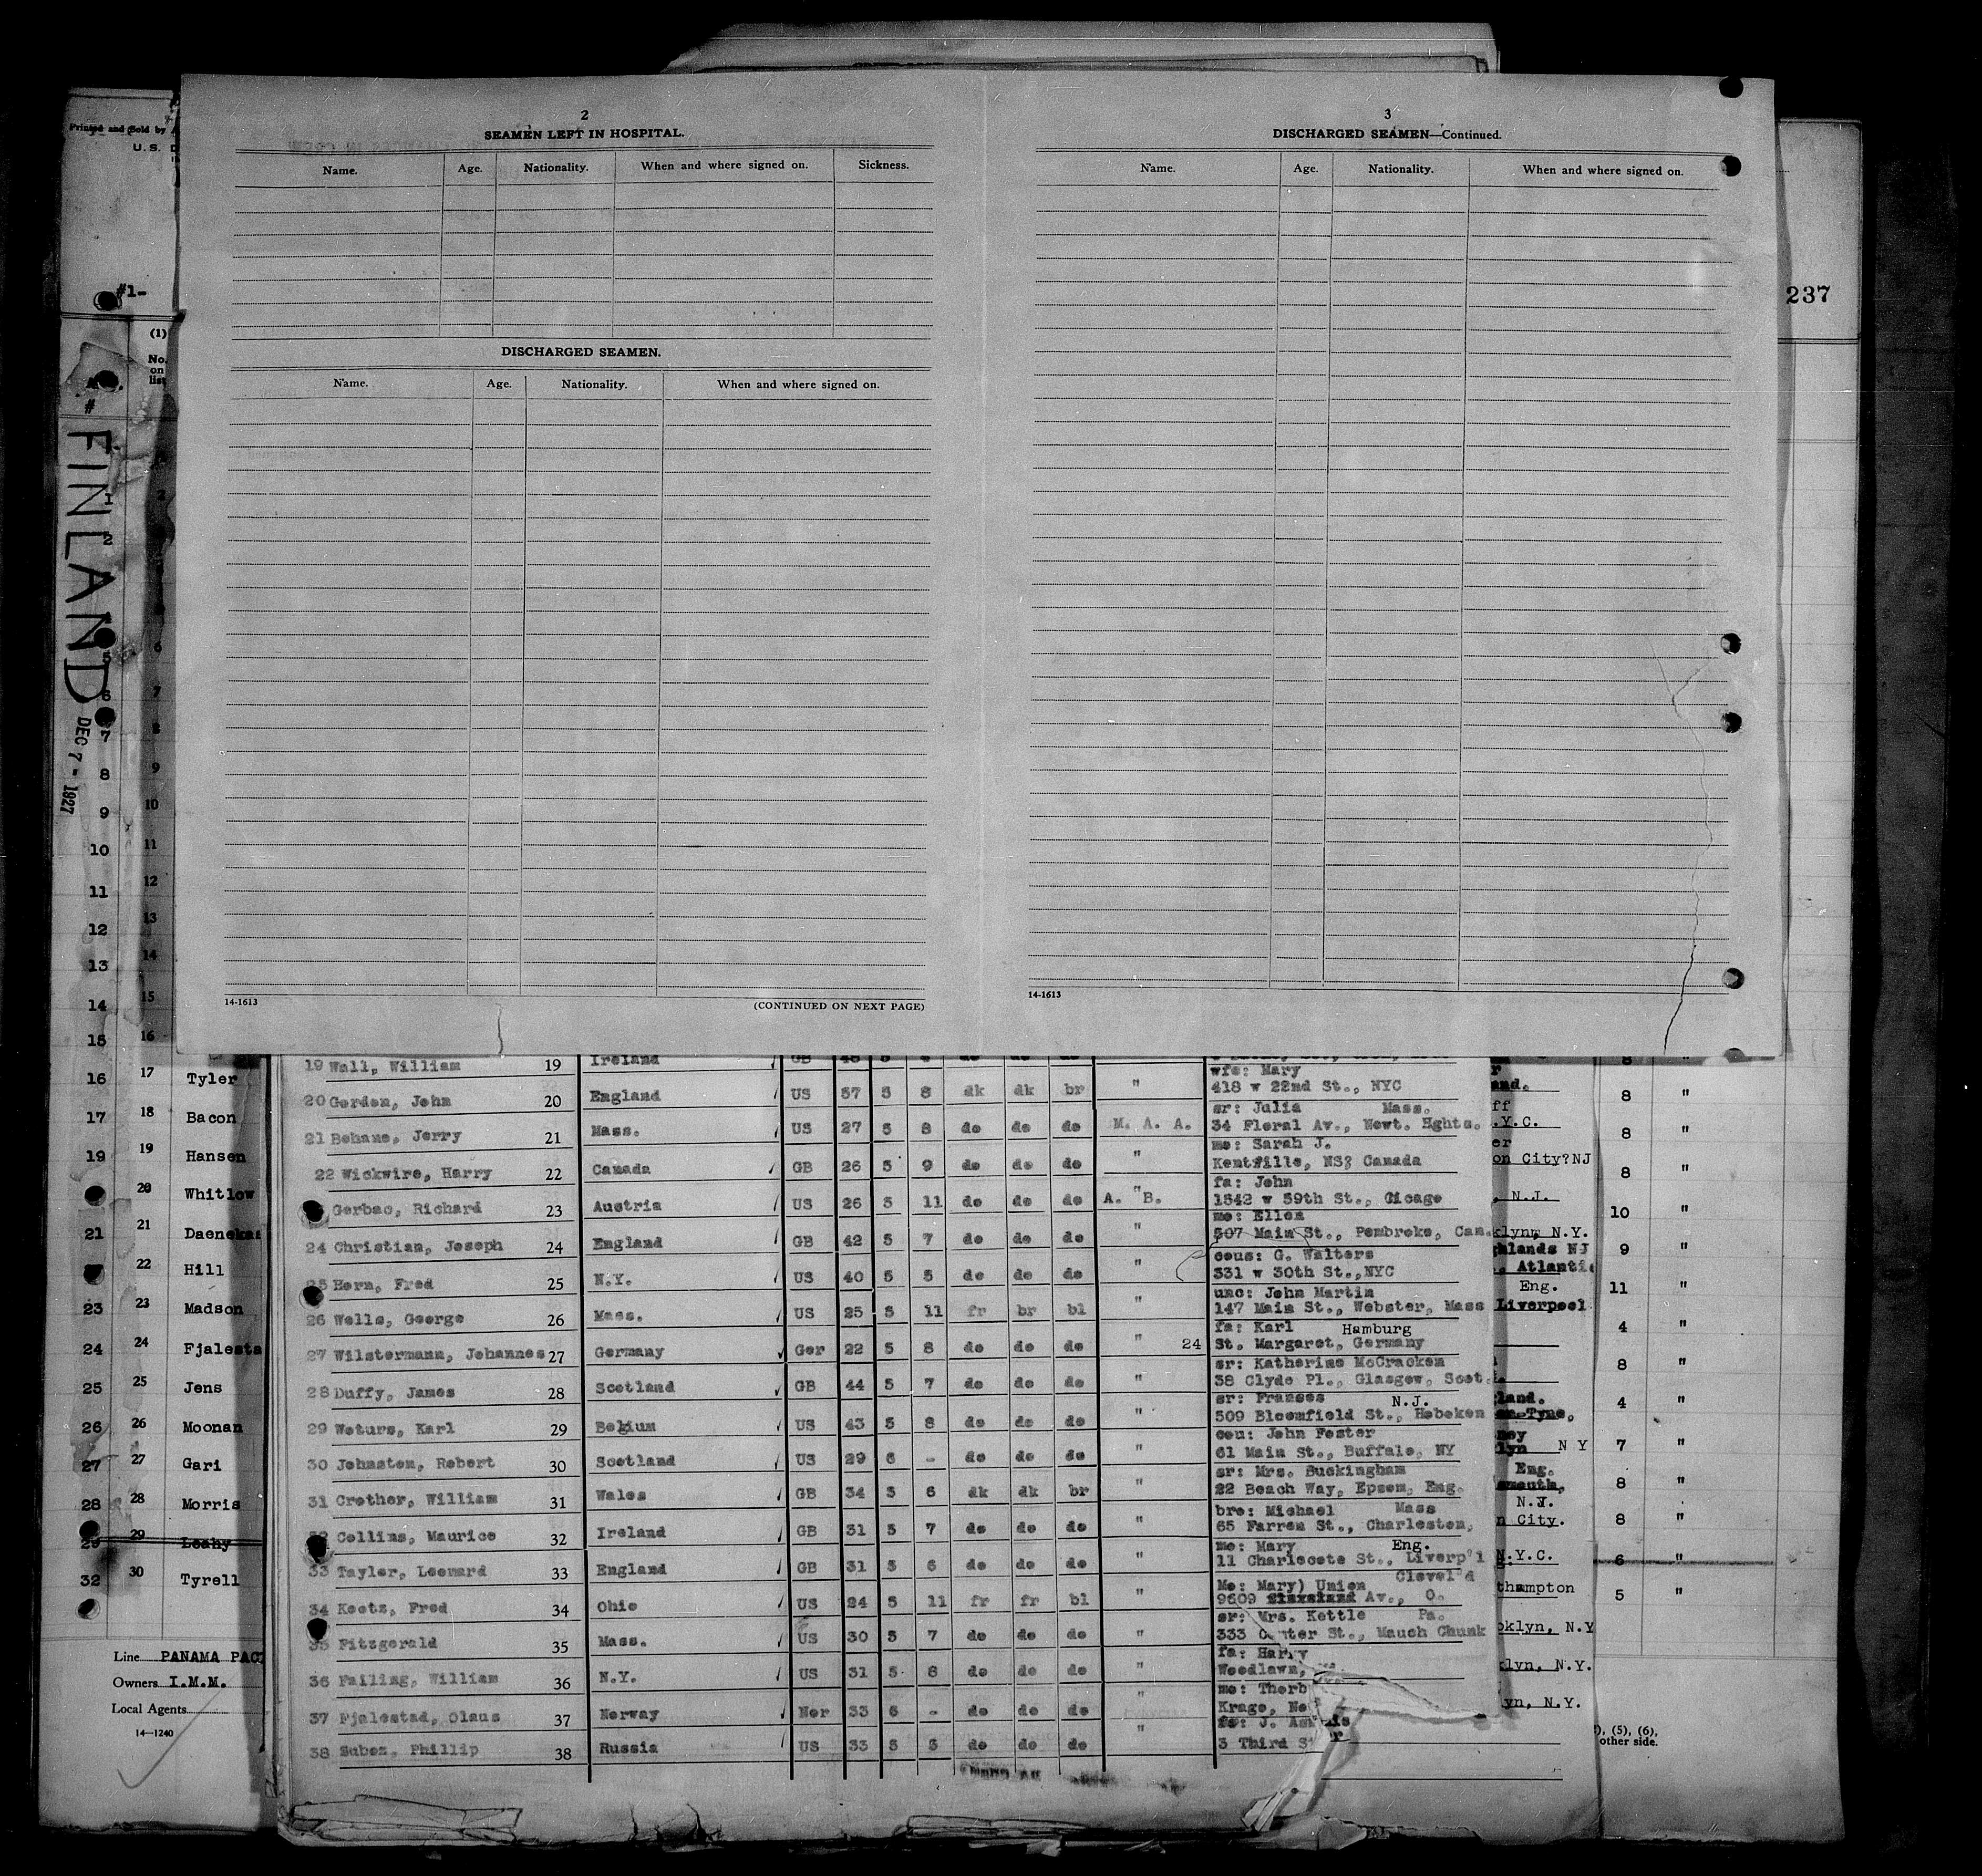 2
SEAMEN LEFT IN HOSPITAL.
Name. Age. Nationality. When and where signed on. Sickness.
DISCHARGED SEAMEN.
Name. Age. Nationality. When and where signed on.
14-1613
(CONTINUED ON NEXT PAGE)
3
DISCHARGED SEAMEN—Continued.
Name. Age. Nationality. When and where signed on.
14-1613
237
Printed and Sold by
U.S.
#1-
(1)
No. on list
#
FINLAND
DEC 7 - 1927
7
8 9
9 10
10 11
11 12
12 13
13 14
14 15
15 16
16 17 Tyler
17 18 Bacon
19 19 Hansen
20 Whitlow
21 21 Daenekas
22 Hill
23 23 Madson
24 24 Fjalesta
25 25 Jens
26 26 Moonan
27 27 Gari
28 28 Morris
29 29 Leahy
32 30 Tyrell
Line PANAMA PAC
Owners I.M.M.
Local Agents
14—1240
19 Wall, William 19 Ireland GB
wfe: Mary
20 Gorden, John 20 England US 37 5 8 dk dk br " 418 w 22nd St., NYC
sr: Julia Mass.
21 Behane, Jerry 21 Mass. US 27 5 8 do do do M. A. A. 34 Floral Av., Newt. Hghts.
mo: Sarah J.
22 Wickwire, Harry 22 Canada GB 26 5 9 do do do " Kentville, NS? Canada
fa: John
Gerbac, Richard 23 Austria US 26 5 11 do do do A. "B. 1542 w 59th St., Cicago
mo: Ellen
24 Christian, Joseph 24 England GB 42 5 7 do do do " 307 Main St., Pembroke, Can.
cous: G. Walters
25 Horn, Fred 25 N.Y. US 40 5 5 do do do " 331 w 30th St.,NYC
unc: John Martin
26 Wells, George 26 Mass. US 25 5 11 fr br bl " 147 Main St., Webster, Mass
fa: Karl Hamburg
27 Wilstermann, Johannes 27 Germany Ger 22 5 8 do do do " 24 St. Margaret, Germany
sr: Katherine McCracken
28 Duffy, James 28 Scotland GB 44 5 7 do do do " 38 Clyde Pl., Glasgow, Scot.
sr: Franses N.J.
29 Weturs, Karl 29 Belgium US 43 5 8 do do do " 509 Bloomfield St., Hoboken
cou: John Foster
30 Johnston, Robert 30 Scotland US 29 6 - do do do " 61 Main St., Buffalo, NY
sr: Mrs. Buckingham
31 Crother, William 31 Wales GB 34 5 6 dk dk br " 22 Beach Way, Epsom, Eng.
bro: Michael Mass
Collins, Maurice 32 Ireland GB 31 5 7 do do do " 65 Farren St., Charleston,
mo: Mary Eng.
33 Taylor, Leonard 33 England GB 31 5 6 do do do " 11 Charlecote St., Liverp'l
Mo: Mary) Union Clevel'd
34 Keetz, Fred 34 Ohio US 24 5 11 fr fr bl " 9609 Av., O.
sr: Mrs. Kettle Pa.
35 Fitzgerald 35 Mass. US 30 5 7 do do do " 333 Center St., Mauch Chunk
fa: Harry
36 Failing, William 36 N.Y. US 31 5 8 do do do " Woodlawn,
mo: Thorb
37 Fjalestad, Olaus 37 Norway Nor 33 6 - do do do " Krage, No
38 Zubez, Phillip 38 Russia US 33 5 5 do do do " 3 Third St
and.
ff
.Y.C.
er
on City?NJ
, N.J.
klyn, N.Y.
ghlands NJ
, Atlantic
Eng.
Liverpool
land.
on-Tyne,
ney
lyn N Y
Eng.
smouth,
N.Y.
n City.
N.Y.C.
thampton
oklyn, N.Y
klyn, N.Y.
yn, N.Y.
8 "
8 "
8 "
10 "
9 "
11 "
4 "
8 "
4 "
7 "
8 "
8 "
6 "
5 "
), (5), (6),
other side.